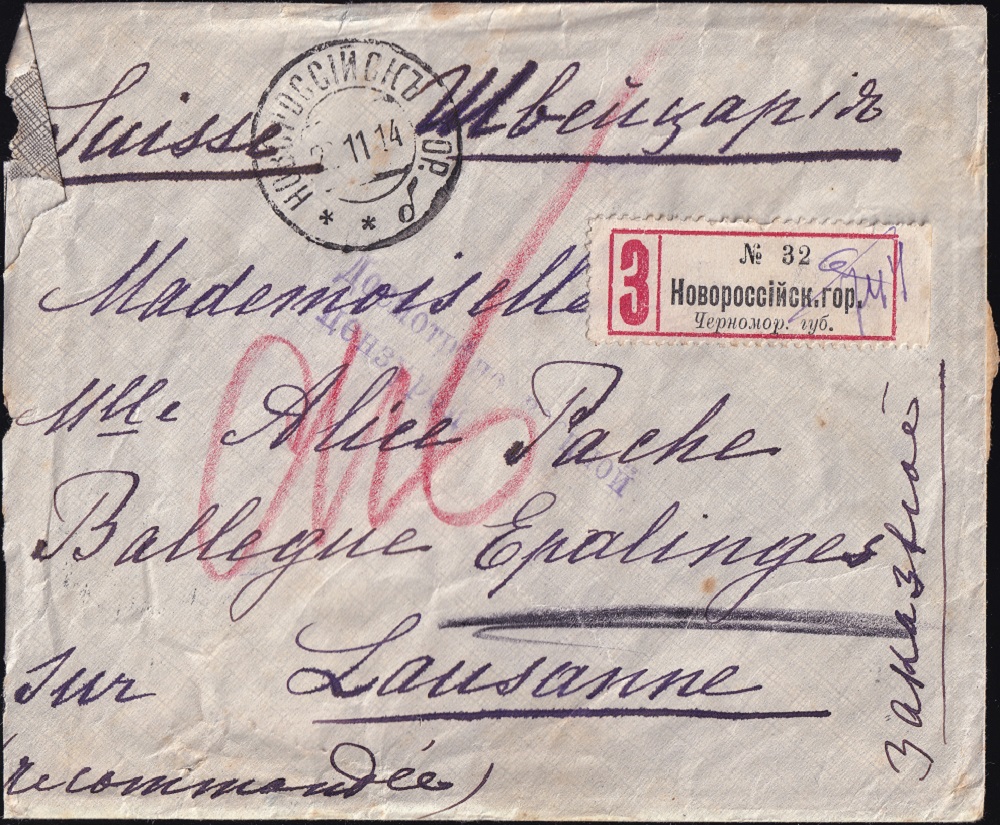 Suisse Швейцарія
НОВОРОССІЙСКЪ ГОР.
11 14
* *
З
№ 32
Новороссійск.гор.
Черномор. губ.
Mademoiselle
Mlle Alice Pache
Ballegue Epalinges
sur Lausanne
(recommandée)
заказное